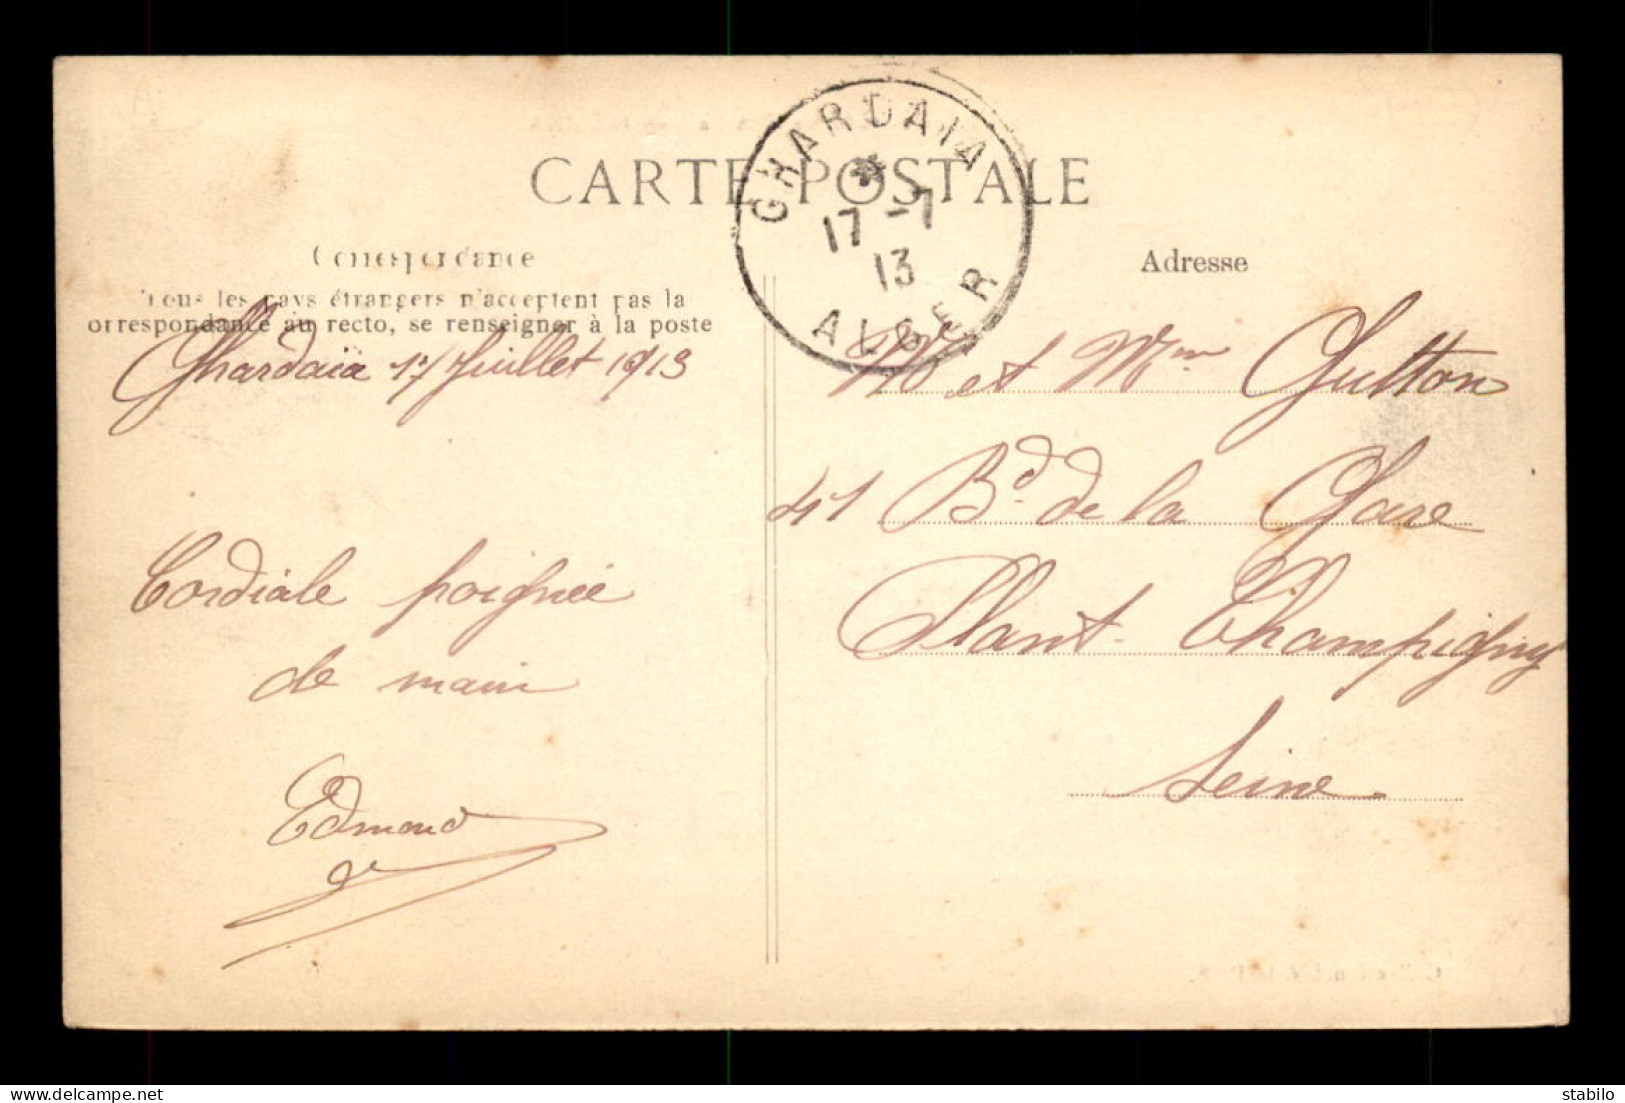 CARTE POSTALE
GHARDAIA
17 - 7
13
ALGER
Correspondance
Tous les pays étrangers n'acceptent pas la
orrespondance au recto, se renseigner à la poste
Adresse
Ghardaïa 17 Juillet 1913
Cordiale poignée
de main
Edmond
Mr et Mme Gutton
41 Bd de la Gare
Plant-Champigny
Seine
stabilo